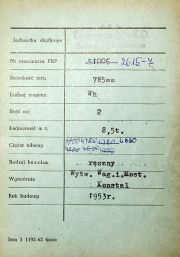 Jednostka służbowa
Nr inwentarza PKP 51006 2615-7
Szerokość toru 785mm
Rodzaj wagonu Wh
Ilość osi 2
Ładowność w t. 8,5t.
Ciężar własny
Rodzaj hamulca ręczny
Wytwórnia Wytw. Wag.i.Most.
Konstal
Rok budowy 1953r.